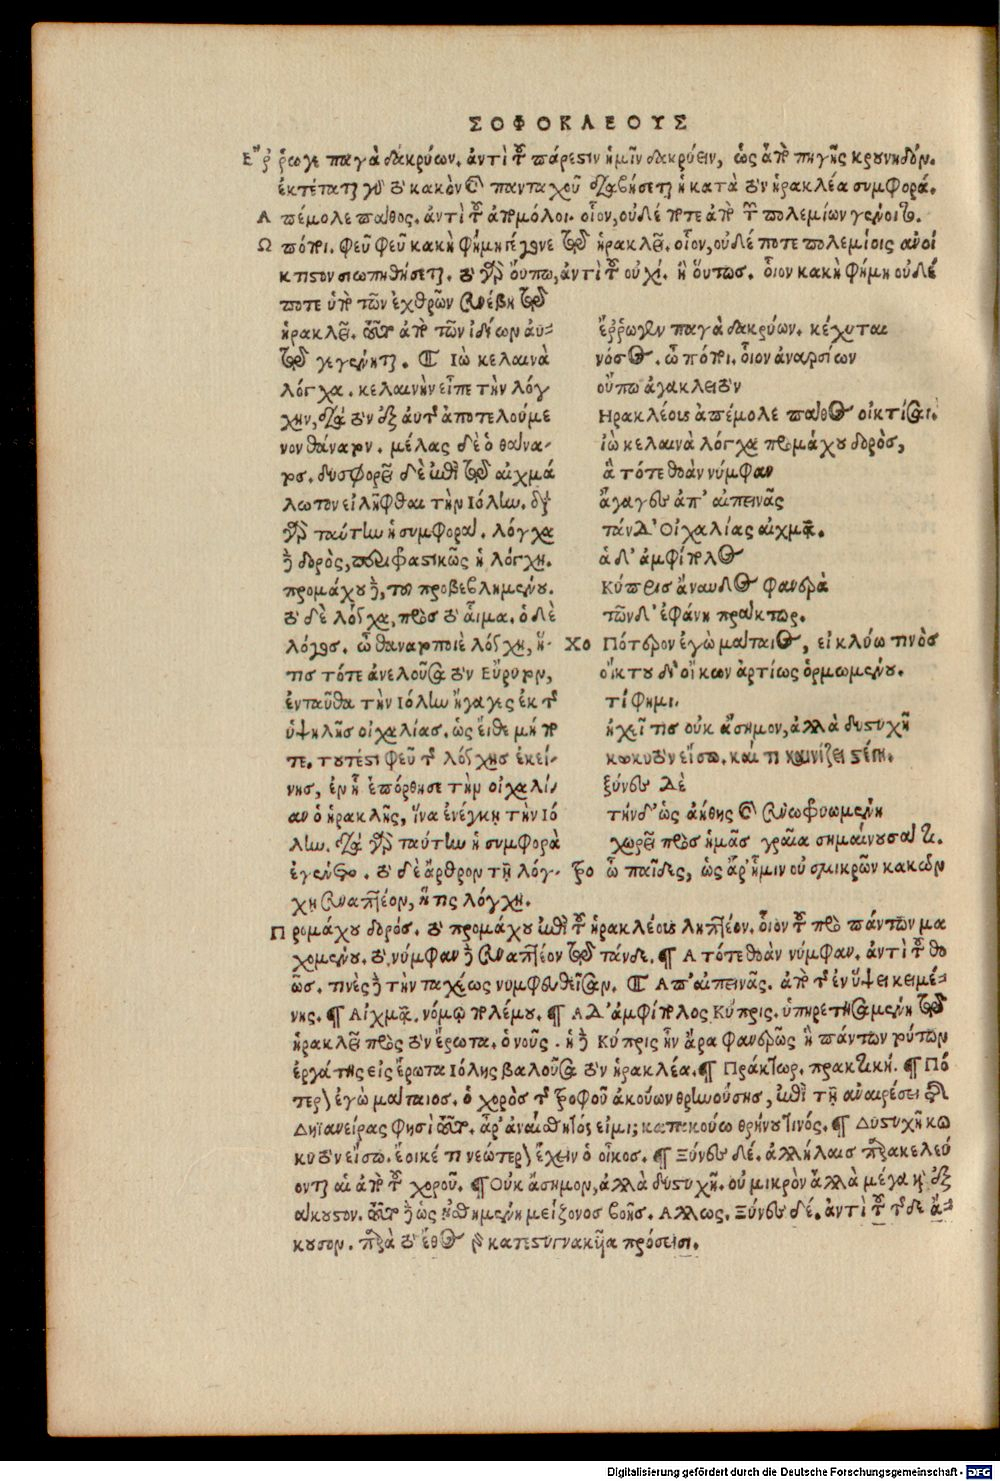 ΣΟΦΟΚΛΕΟΥΣ
Ἔρρωγε παγὰ δακρύων. ἀντὶ τοῦ πάρεστιν ἡμῖν δακρύειν, ὡς ἀπὸ πηγῆς κρουνηδόν.
ἐκτέταται γὰρ τὸ κακὸν καὶ πανταχοῦ διαβήσεται ἡ κατὰ τὸν ἡρακλέα συμφορά.
Α πέμολε πάθος. ἀντὶ τοῦ ἀπομόλοι. οἷον, οὐδέποτε ἀπὸ τῶν πολεμίων γένοιτο.
Ω πόποι. φεῦ φεῦ κακὴ φήμη γέγονε τοῦ ἡρακλέους. οἷον, οὐδέ ποτε πολεμίοις ἀνοί
κτιστον σιωπηθήσεται. τὸ γὰρ οὔπω, ἀντὶ τοῦ οὐχί. ἢ οὕτως. οἷον κακὴ φήμη οὐδέ
ποτε ὑπὸ τῶν ἐχθρῶν συνέβη τοῦ
ἡρακλέους. τοῦτο ἀπὸ τῶν ἰδίων αὐ-
τοῦ γεγένηται. ¶ Ιὼ κελαινὰ
λόγχα. κελαινὴν εἶπε τὴν λόγ
χην, διὰ τὸν ἐξ αὐτῆς ἀποτελούμε
νον θάνατον. μέλας δὲ ὁ θάνα-
τος. δυσφορεῖ δὲ ἐπὶ τοῦ αἰχμά
λωτον εἰλῆφθαι τὴν Ιόλην. διὰ
γὰρ ταύτην ἡ συμφορά. λόγχα
δὲ δορὸς, περιφραστικῶς ἡ λόγχη.
προμάχου δὲ, τοῦ προβεβλημένου.
τὸ δὲ λόγχα, πρὸς τὸ αἷμα. ὁ δὲ
λόγος. ὦ θανατοποιὲ λόγχη, ἥ-
τις τότε ἀνελοῦσα τὸν Εὔρυτον,
ἐνταῦθα τὴν Ιόλην ἤγαγες ἐκ τῆς
ὑψηλῆς οἰχαλίας. ὡς εἴθε μή πο
τε. τουτέστι φεῦ τῆς λόγχης ἐκεί-
νης, ἐν ᾗ ἐπόρθησε τὴν οἰχαλί-
αν ὁ ἡρακλῆς, ἵνα ἐνέγκῃ τὴν Ιό
λην. διὰ γὰρ ταύτην ἡ συμφορὰ
ἐγένετο. τὸ δὲ ἄρθρον τῇ λόγ-
χῃ συναπτέον, ἥτις λόγχη.
ἔρρωγεν παγὰ δακρύων. κέχυται
νόσος. ὦ πόποι. οἷον ἀναρσίων
οὔπω ἀγακλειτὸν
Ηρακλέοις ἀπέμολε πάθος οἰκτίσαι.
ἰὼ κελαινὰ λόγχα προμάχου δορὸς,
ἃ τότε θοὰν νύμφαν
ἄγαγες ἀπ' αἰπεινᾶς
τάνδ' Οἰχαλίας αἰχμᾷ.
ἁ δ' ἀμφίπολος
Κύπρις ἄναυδος φανερὰ
τῶνδ' ἐφάνη πράκτωρ.
ΧΟ Πότερον ἐγὼ μάταιος, εἰ κλύω τινὸς
οἴκτου δι' οἴκων ἀρτίως ὁρμωμένου.
τί φημι.
ἠχεῖ τις οὐκ ἄσημον, ἀλλὰ δυστυχῆ
κωκυτὸν εἴσω. καί τι καινίζει στέγη.
ξύνες δὲ
τήνδ' ὡς ἀήθης καὶ συνωφρυωμένη
χωρεῖ πρὸς ἡμᾶς γραῖα σημαίνουσά τι.
ΤΡΟ ὦ παῖδες, ὡς ἄρ' ἡμιν οὐ σμικρῶν κακῶν
Προμάχου δορός. τὸ προμάχου ἐπὶ τοῦ ἡρακλέους ληπτέον. οἷον τοῦ πρὸ πάντων μα
χομένου. τὸ νύμφαν δὲ συναπτέον τοῦ τάνδε. ¶ Α τότε θοὰν νύμφαν. ἀντὶ τοῦ θο
ῶς. τινὲς δὲ τὴν ταχέως νυμφευθεῖσαν. ¶ Απ' αἰπεινᾶς. ἀπὸ τῆς ἐν ὕψει κειμέ-
νης. ¶ Αἰχμᾷ. νόμῳ πολέμου. ¶ Α δ' ἀμφίπολος Κύπρις. ὑπηρετησαμένη τοῦ
ἡρακλέους πρὸς τὸν ἔρωτα. ὁ νοῦς. ἡ δὲ Κύπρις ἦν ἄρα φανερῶς ἡ πάντων τούτων
ἐργάτης εἰς ἔρωτα Ιόλης βαλοῦσα τὸν ἡρακλέα. ¶ Πράκτωρ. πρακτική. ¶ Πό
τερον ἐγὼ μάταιος. ὁ χορὸς τῆς τροφοῦ ἀκούων θρηνούσης, ἐπὶ τῇ ἀναιρέσει τῆς
Δηϊανείρας φησὶ τοῦτο. ἆρ' ἀναίσθητός εἰμι; κατακούω θρήνου τινός. ¶ Δυστυχῆ κω
κυτὸν εἴσω. ἔοικέ τι νεώτερον ἔχειν ὁ οἶκος. ¶ Ξύνες δέ. ἀλλήλαις παρακελεύ
ονται αἱ ἀπὸ τοῦ χοροῦ. ¶ Οὐκ ἄσημον, ἀλλὰ δυστυχῆ. οὐ μικρὸν ἀλλὰ μέγα καὶ ἐξ
άκουστον. τοῦτο δὲ ὡς ᾐσθημένη μείζονος βοῆς. Αλλως. Ξύνες δέ. ἀντὶ τοῦ τῆσδε ἄ-
κουσον. παρὰ τὸ ἔθος κατεστυγνακυῖα πρόσεισι.
Digitalisierung gefördert durch die Deutsche Forschungsgemeinschaft - DFG